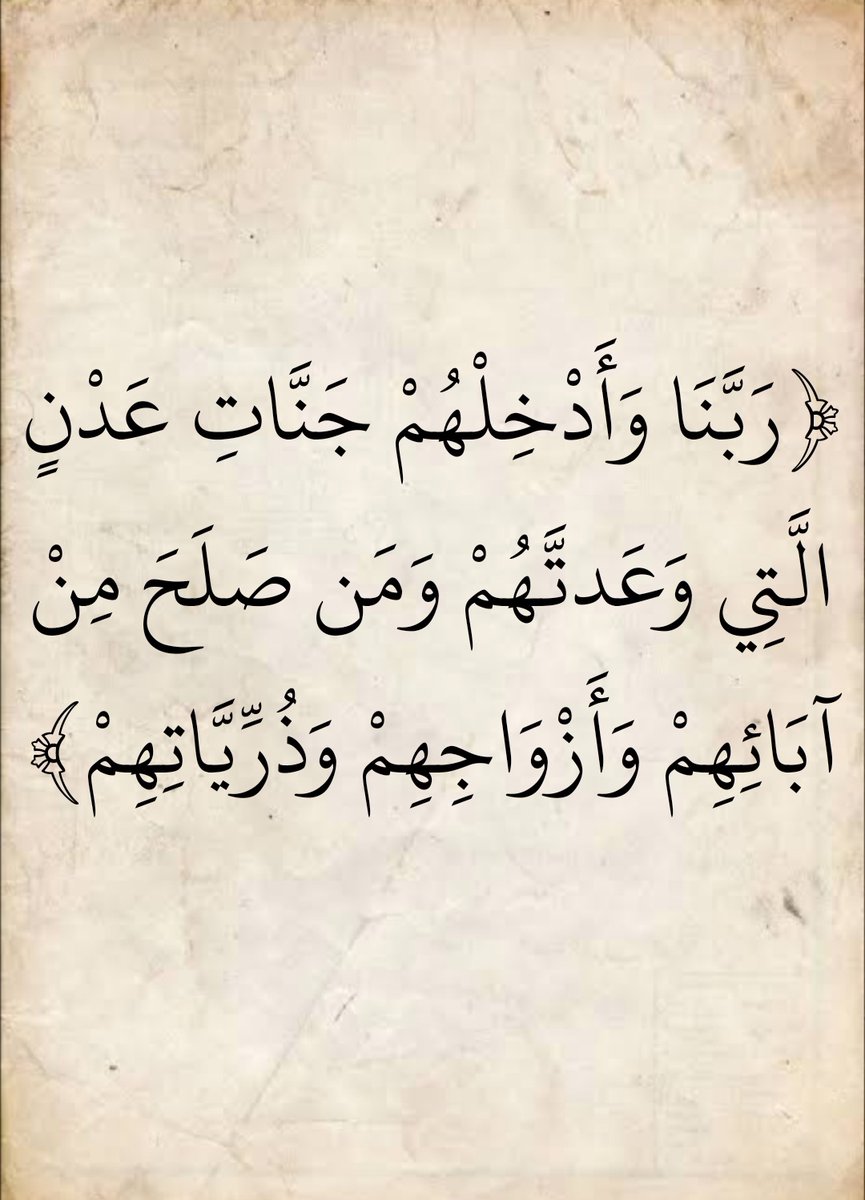 ﴿رَبَّنَا وَأَدْخِلْهُمْ جَنَّاتِ عَدْنٍ
الَّتِي وَعَدتَّهُمْ وَمَن صَلَحَ مِنْ
آبَائِهِمْ وَأَزْوَاجِهِمْ وَذُرِّيَّاتِهِمْ﴾